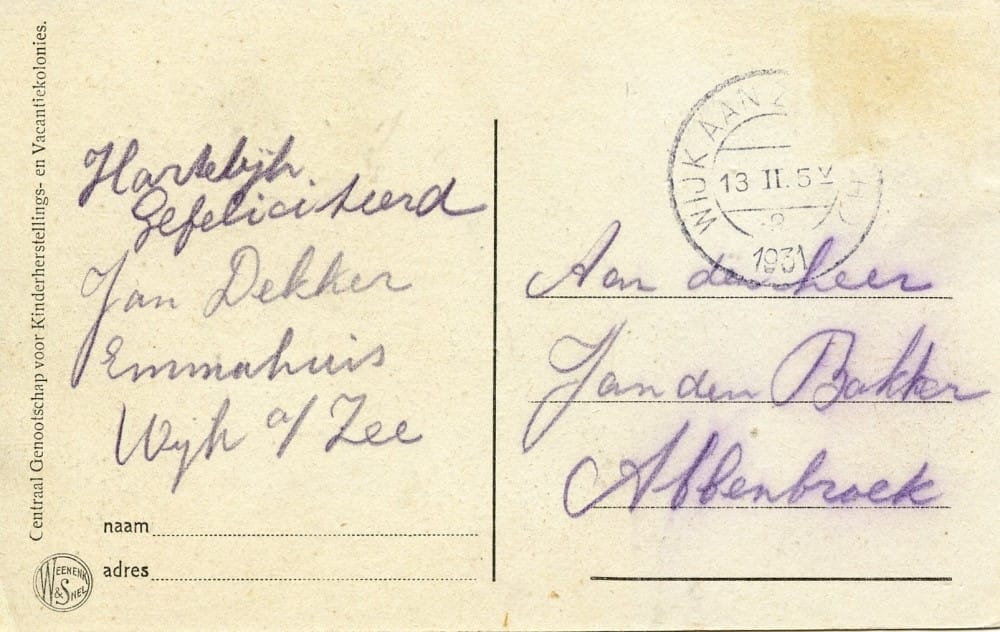 Centraal Genootschap voor Kinderherstellings- en Vacantiekolonies.
Hartelijk
Gefeliciteerd
Jan Dekker
Emmahuis
Wijk a/ Zee
naam
adres
WEENENK
& SNEL
WIJK AAN Z
13 II. 5 V
1931
Aan den heer
Jan den Bakker
Abbenbroek